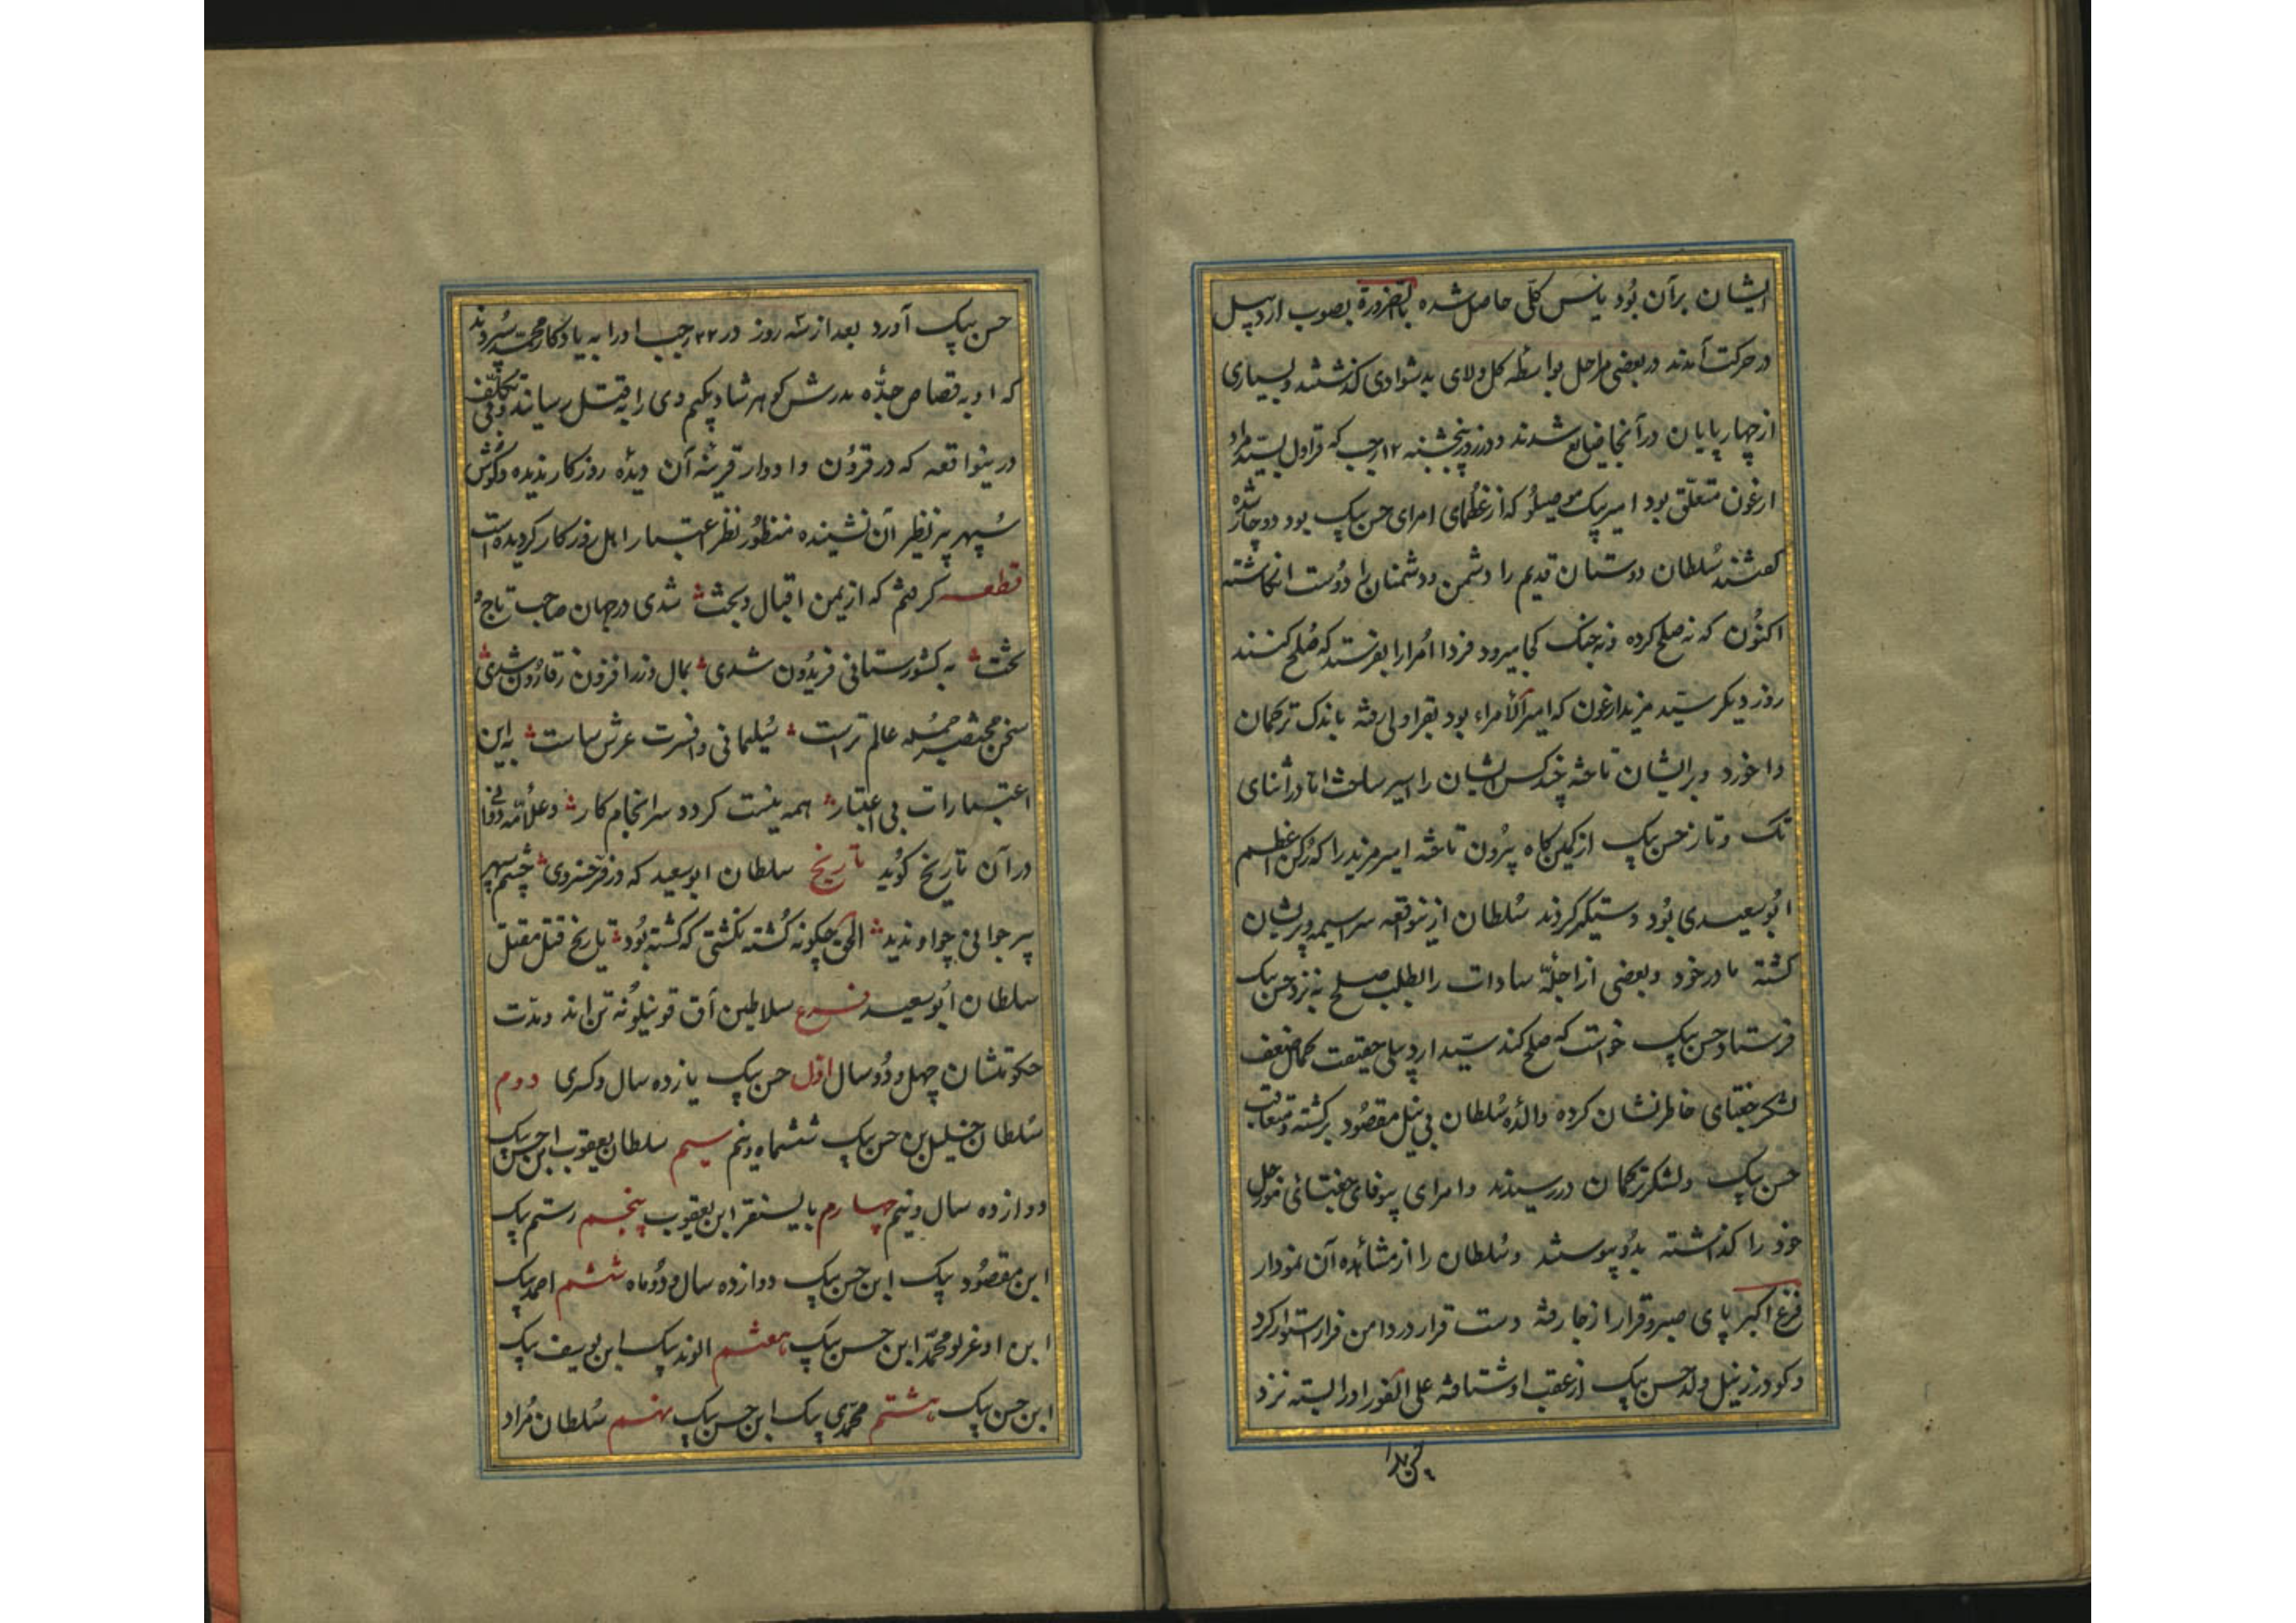 ایشان برآن بود یأس کلی حاصل شده بالضرورة بصوب اردبیل
در حرکت آمدند در بعضی مراحل بواسطه کل ولای بدشوادی کذشتند و بسیاری
از چهار پایان در آنجا ضایع شدند و در روز پنجشنبه ۱۲ رجب که قراول بسید مراد
ارغون متعلق بود امیر بیک موصیلو که از عظمای امرای حسن بیک بود دوچار شده
کفتند سلطان دوستان قدیم را دشمن ودشمنان را دوست انکاشته
اکنون که نه صلح کرده ونه جنک کجا میرود فردا امرارا بفرستید که صلح کنند
روز دیکر سید مزید ارغون که امیر الأمراء بود بقراولی رفته باندک ترکمان
دا خورد و بر ایشان تاخته چند کس ایشان را اسیر ساخت اما در اثنای
تک وتاز حسن بیک از کمین کاه بیرون تاخته امیر مزید را که رکن اعظم
ابو سعیدی بود دستیکر کردند سلطان ازینواقعه سراسیمه وپریشان
کشته مادر خود وبعضی از اجله سادات را بطلب صلح به نزد حسن بیک
فرستاد حسن بیک خواست که صلح کند سید اردبیلی حقیقت کمال ضعف
لشکر جغتای خاطر نشان کرده والده سلطان بی نیل مقصود برکشته ومتعاقب
حسن بیک ولشکر ترکمان در رسیدند وامرای بیوفای جغتائی مورجل
خود را کذاشته بدو پیوستند وسلطان را از مشائده آن نمودار
فزغ اکبر پای صبر وقرار از جا رفته دست قرار در دامن فرار استوار کرد
وکودرز زنیل ولد حسن بیک از عقب او شتافته علی الفور اورا بسته نزد
حسن بیک آورد بعد از سه روز در ۲۲ رجب اورا به یادکار محمد سپردند
که او به قصاص جده پدرش کوهر شاد بیکیم وی را به قتل رسانید وفی تکلف
درینواقعه که در قرون وادوار قرینه آن دیده روزکار ندیده وکوش
سپهر پیر نظیر آن نشینده منظور نظر اعتبار اهل روزکار کردیده است
قطعه کرفتم که از یمن اقبال وبخت شدی در جهان صاحب تاج و
تخت به کشورستانی فریدون شدی بمال وزر افزون ز قارون شدی
سخن مختصر جمله عالم تراست سلیمانی وافسرت عرش ساست به این
اعتبارات بی اعتبار همه نیست کردد سرانجام کار وعلامه دوانی
در آن تاریخ کوید تاریخ سلطان ابو سعید که در فر خسروی چشم سپهر
پیر جوانی چو او ندید الحق چکونه کشته نکشتی که کشته بود تاریخ قتل مقتل
سلطان ابو سعید فرع سلاطین آق قوینلو نه تن اند ومدت
حکومتشان چهل ودو سال اول حسن بیک یازده سال وکسری دوم
سلطان خلیل بن حسن بیک ششماه ونیم سیم سلطان یعقوب ابن حسن بیک
دوازده سال ونیم چهارم بایسنقر ابن یعقوب پنجم رستم بیک
ابن مقصود بیک ابن حسن بیک دوازده سال ودو ماه ششم احمد بیک
ابن اوغرلو محمد ابن حسن بیک هفتم الوند بیک ابن یوسف بیک
ابن حسن بیک هشتم محمدی بیک ابن حسن بیک نهم سلطان مراد